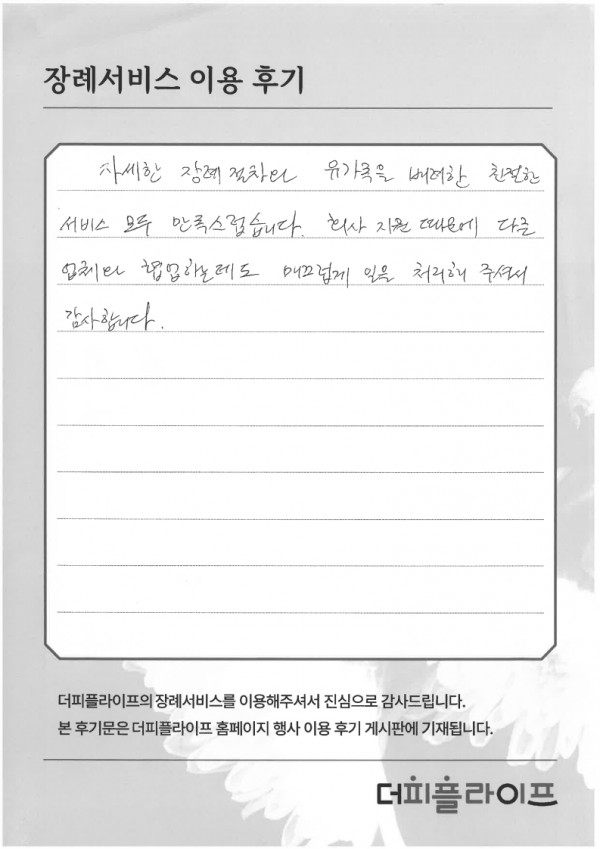 장례서비스 이용 후기
자세한 장례 절차와 유가족을 배려한 친절한
서비스 모두 만족스럽습니다. 회사 지원 때문에 다른
업체와 협업하는데도 매끄럽게 일을 처리해 주셔서
감사합니다.
더피플라이프의 장례서비스를 이용해주셔서 진심으로 감사드립니다.
본 후기문은 더피플라이프 홈페이지 행사 이용 후기 게시판에 기재됩니다.
더피플라이프